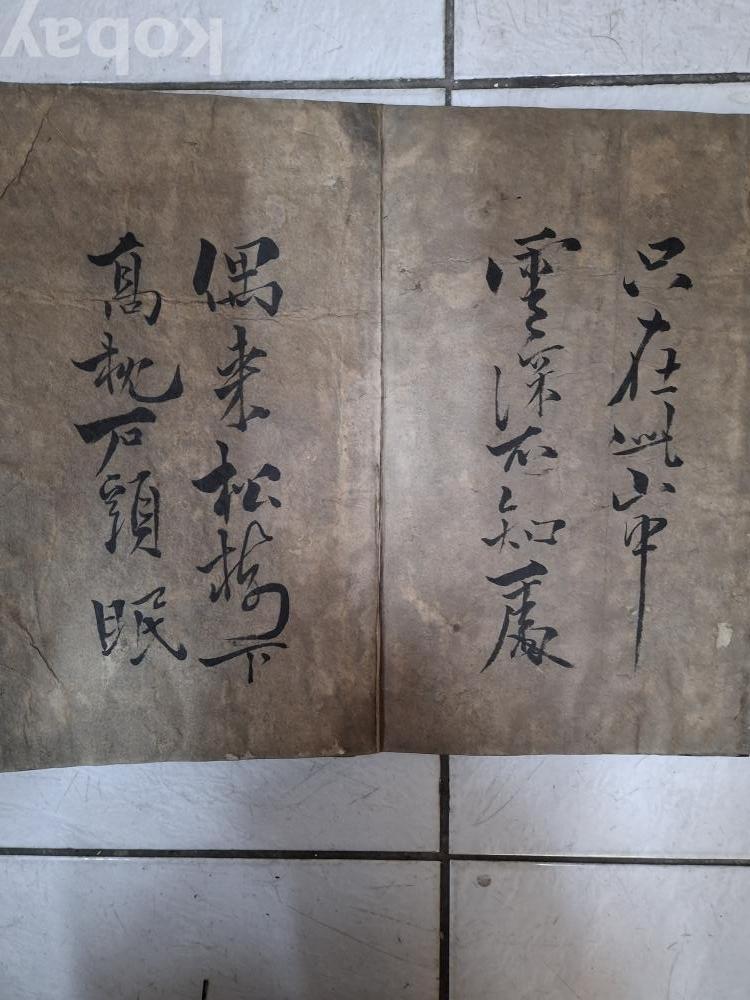 只在此山中
雲深不知處
偶来松樹下
髙枕石頭眠
kobay